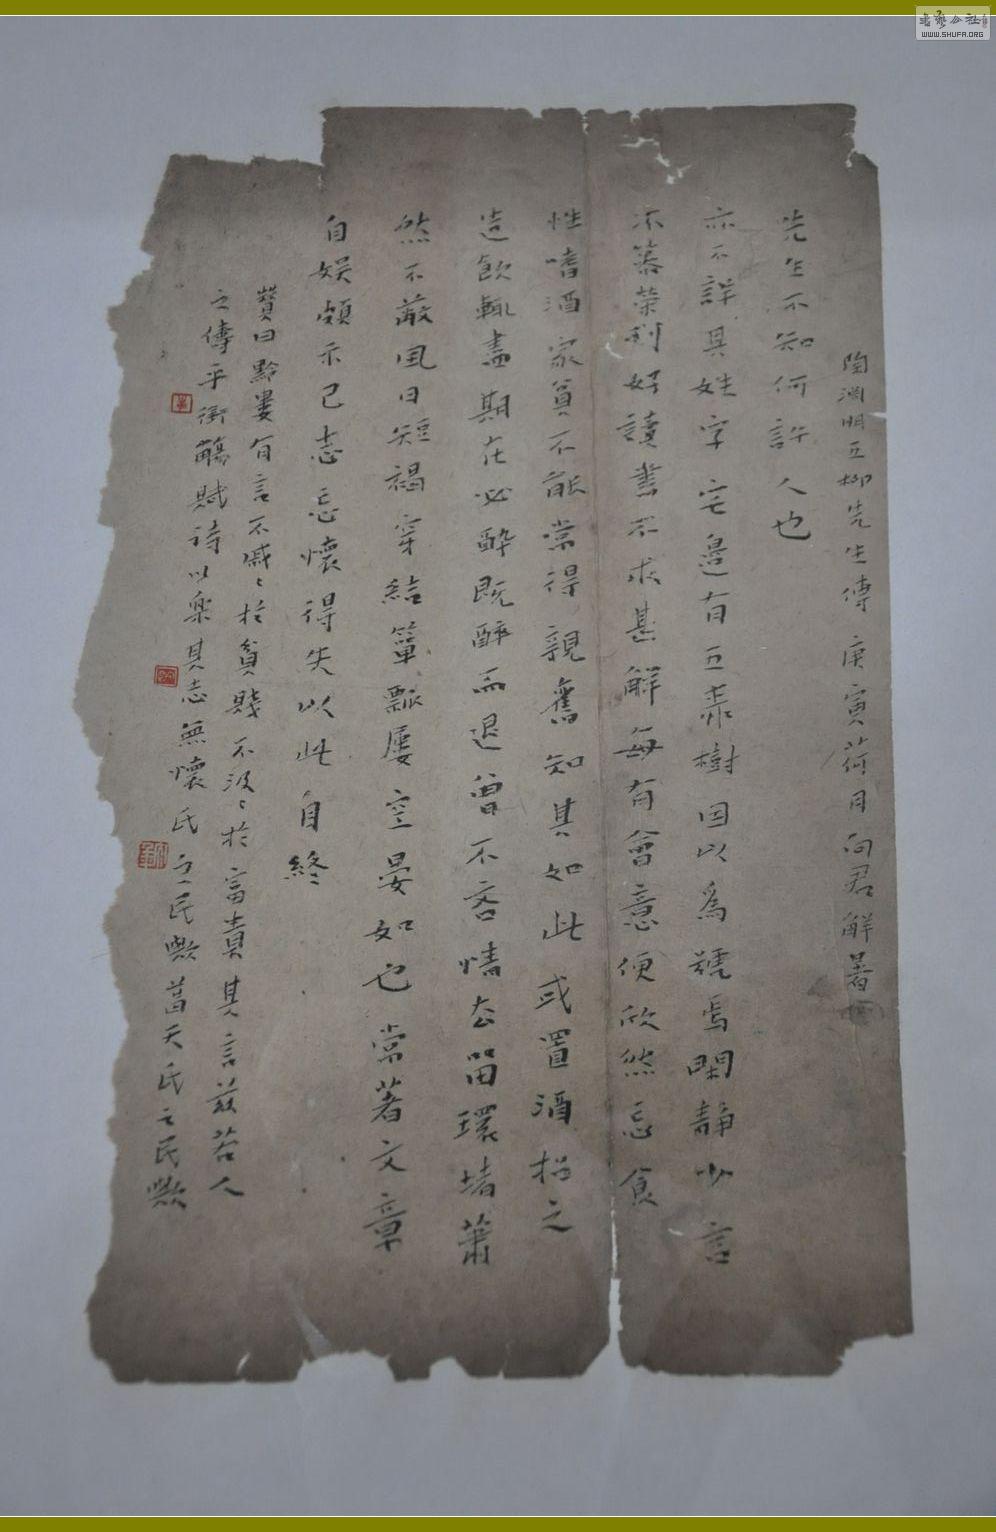 陶淵明五柳先生傳 庚寅荷月向君解暑
先生不知何許人也
亦不詳其姓字宅邊有五柳樹因以為號焉閑静少言
不慕榮利好讀書不求甚解每有會意便欣然忘食
性嗜酒家貧不能常得親舊知其如此或置酒招之
造飲輒盡期在必醉既醉而退曾不吝情去留環堵蕭
然不蔽風日短褐穿結簞瓢屢空晏如也常著文章
自娛頗示己志忘懷得失以此自終
贊曰黔婁有言不戚〻於貧賤不汲〻於富貴其言茲若人
之儔乎銜觴賦詩以樂其志無懷氏之民歟葛天氏之民歟
書藝公社
WWW.SHUFA.ORG